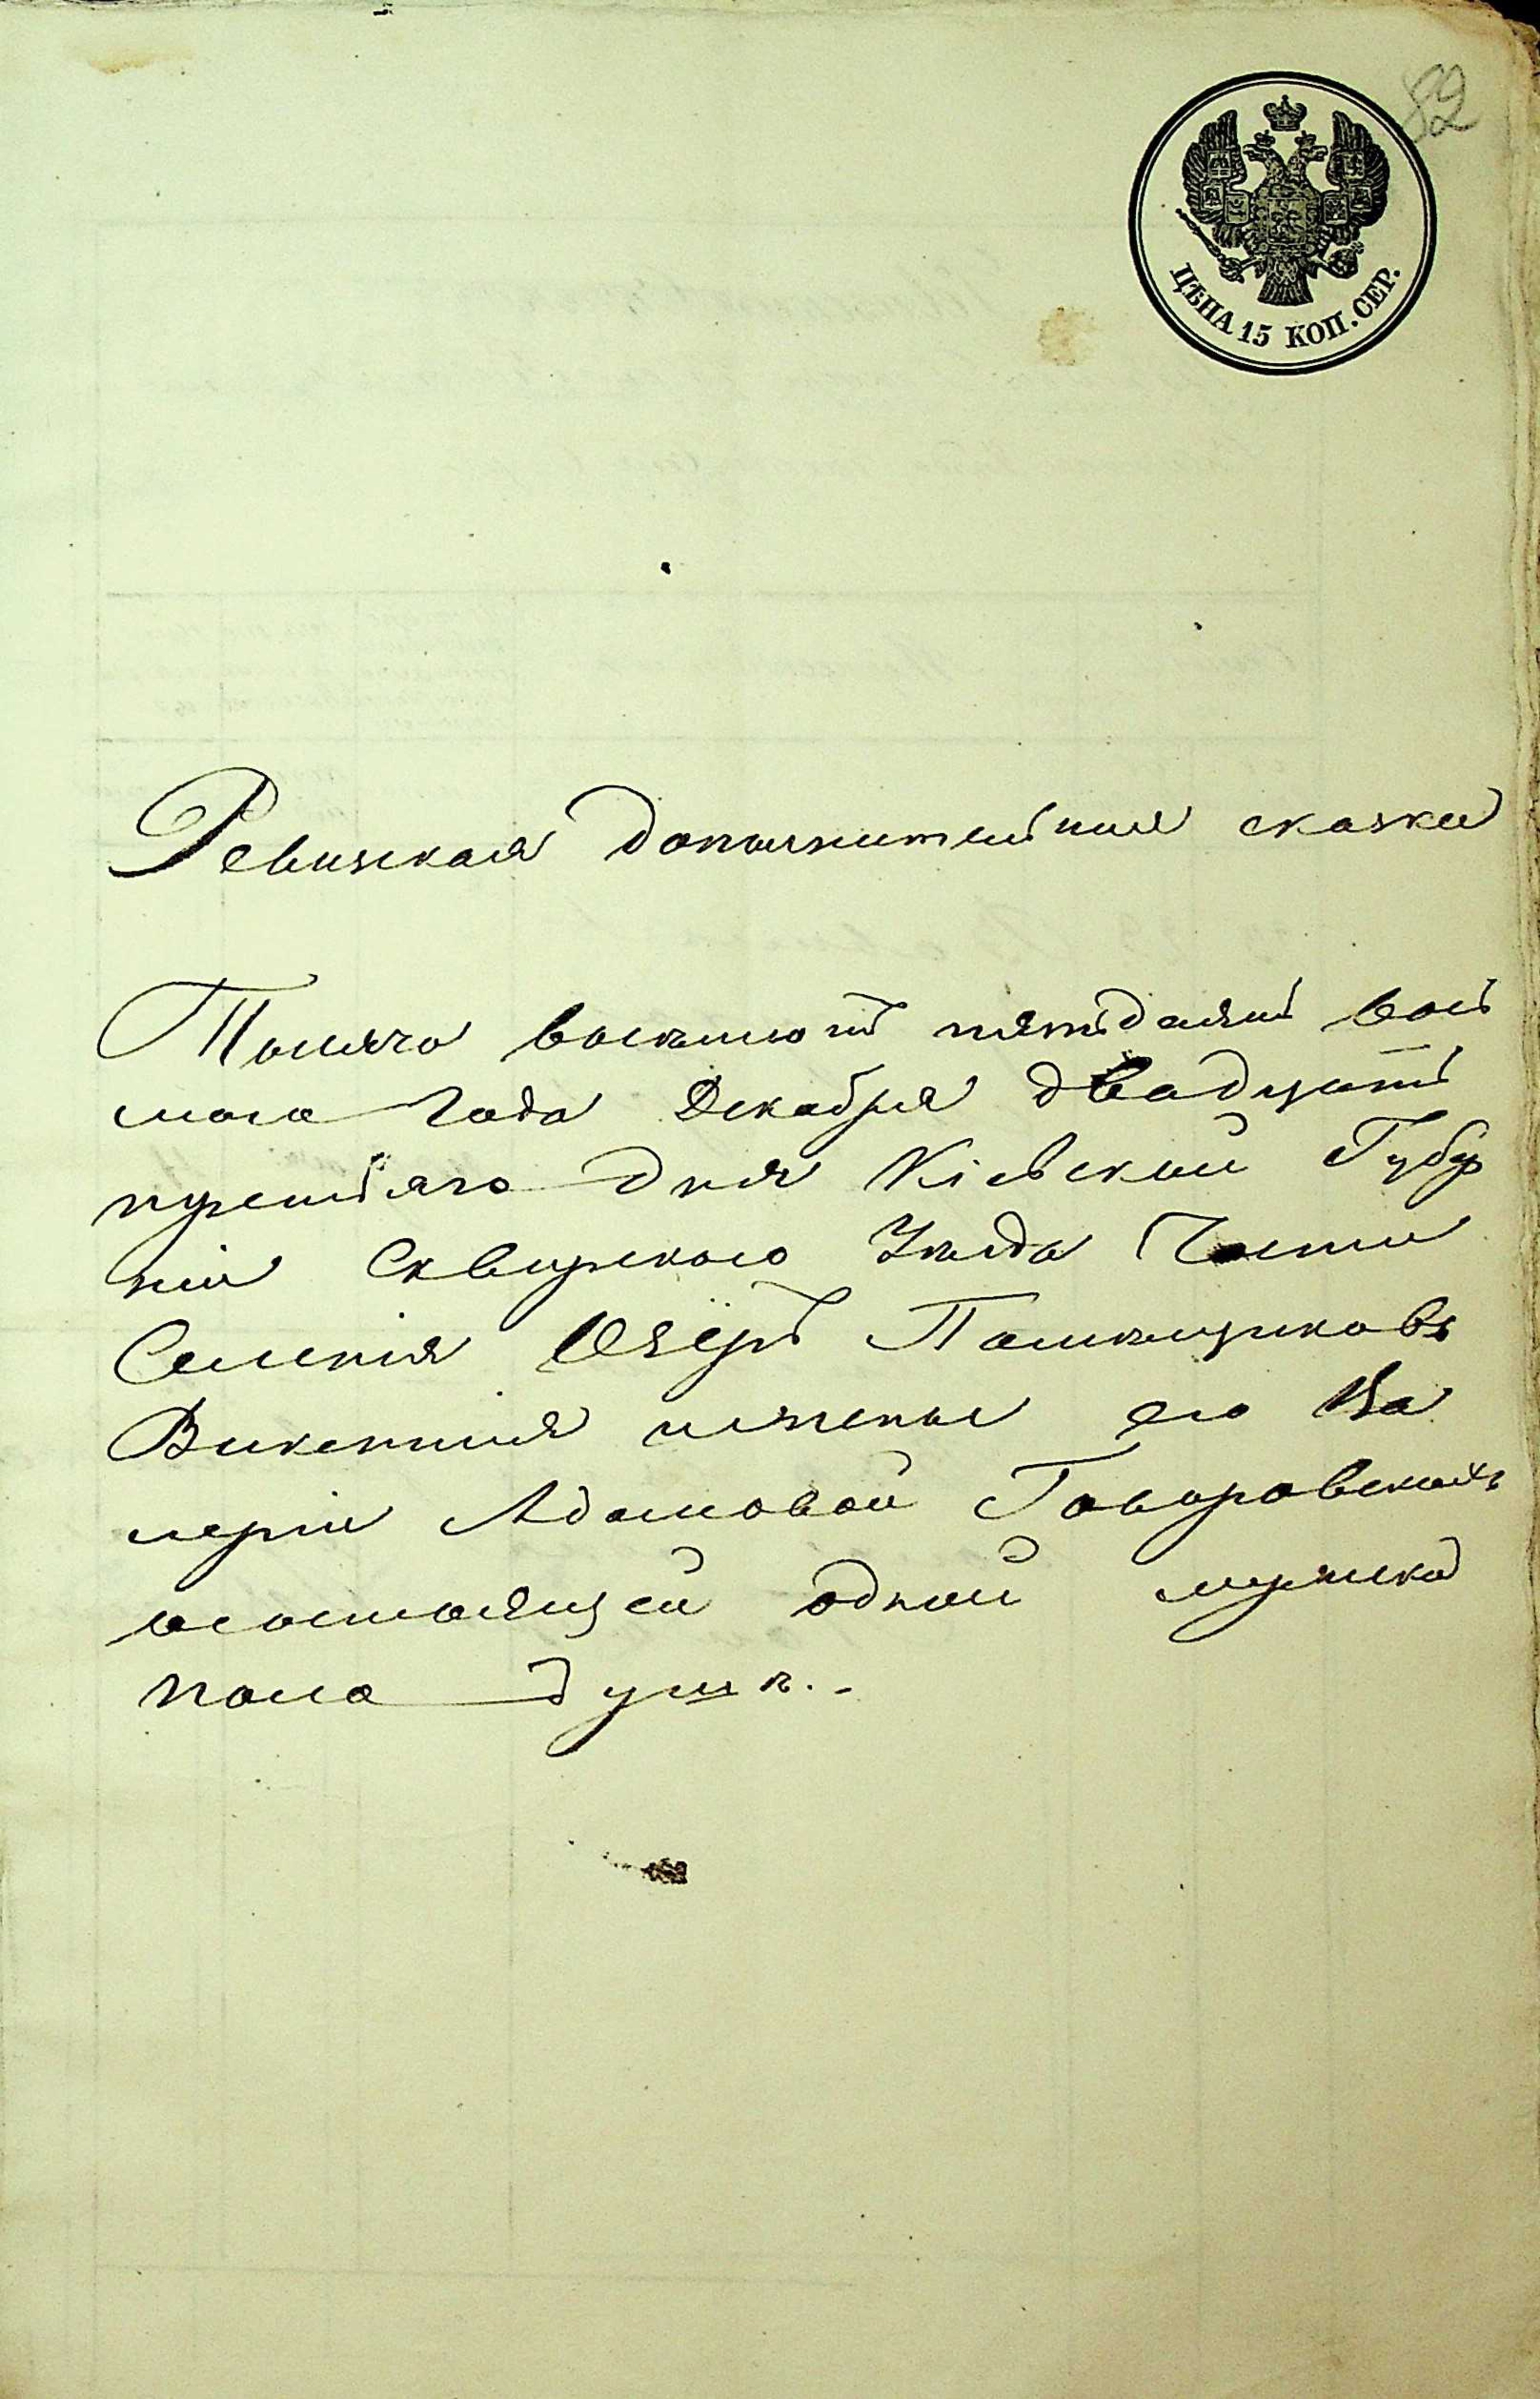 82
ЦѢНА 15 КОП. СЕР.
Ревизская дополнительная сказка
Тысяча восемьсотъ пятьдесятъ вось
маго года Декабря двадцать
третьяго дня Кіевской Губер
ніи Сквирскаго Уѣзда Части
Селенія Озеръ Помѣщиковъ
Викентія и жены его Ва
леріи Адамовой Говоровскихъ
о состоящей одной мужска
пола душѣ.-